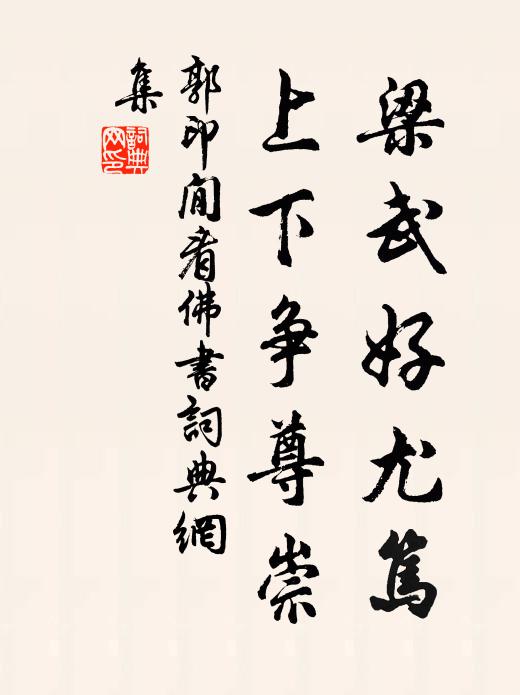 梁武好尤篤
上下争尊崇
郭印閒看佛書詞典網
集
詞典网印